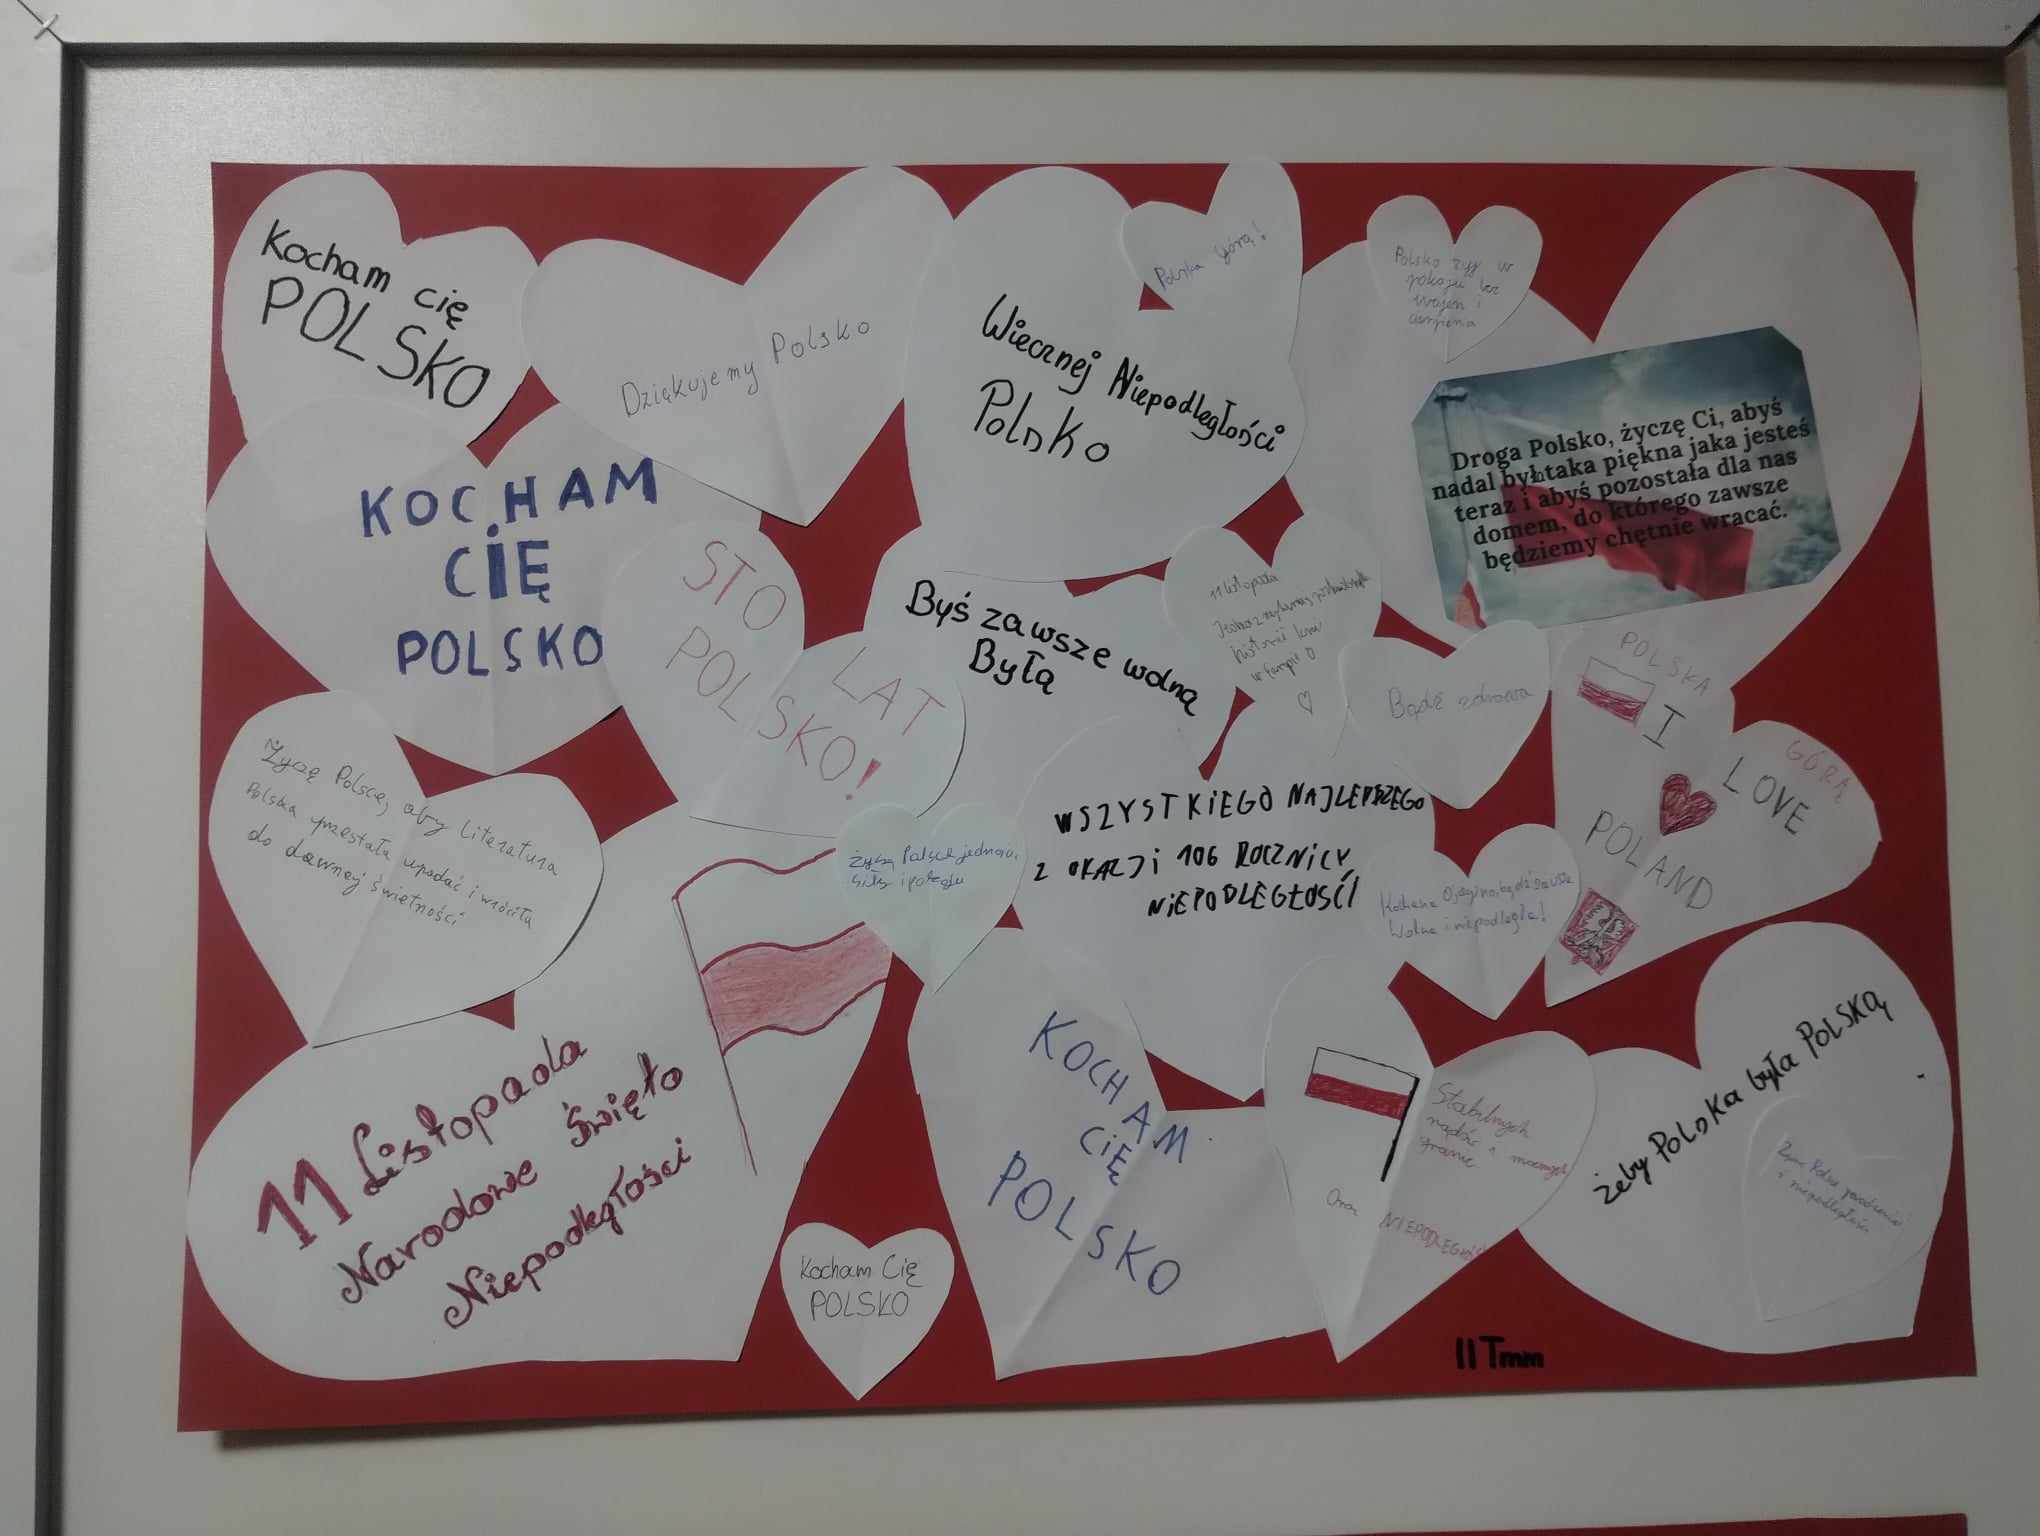 Kocham cię
POLSKO
Dziękujemy Polsko
Wiecznej Niepodległości
Polsko
Polska Górą!
Polsko żyj w
pokoju bez
wojen i
cierpienia
Droga Polsko, życzę Ci, abyś
nadal była taka piękna jaka jesteś
teraz i abyś pozostała dla nas
domem, do którego zawsze
będziemy chętnie wracać.
KOCHAM
CIĘ
POLSKO
STO LAT
POLSKO!
Byś zawsze wolną
Byłą
11 listopada
historii
Bądź zdrowa
POLSKA
GÓRĄ
I
LOVE
POLAND
Życzę Polsce, aby literatura
Polska przestała upadać i wróciła
do dawnej świetności
Życzę Polsce jedności,
siły i pokoju
WSZYSTKIEGO NAJLEPSZEGO
Z OKAZJI 106 ROCZNICY
NIEPODLEGŁOŚCI
Kochana Ojczyzno, bądź zawsze
Wolna i niepodległa!
11 Listopada
Narodowe Święto
Niepodległości
KOCHAM
CIĘ
POLSKO
Stabilnych
rządów i mocnych
granic
Oraz NIEPODLEGŁOŚCI
żeby Polska była POLSKĄ
Życzę Polsce powodzenia
i niepodległości
Kocham Cię
POLSKO
II Tmm